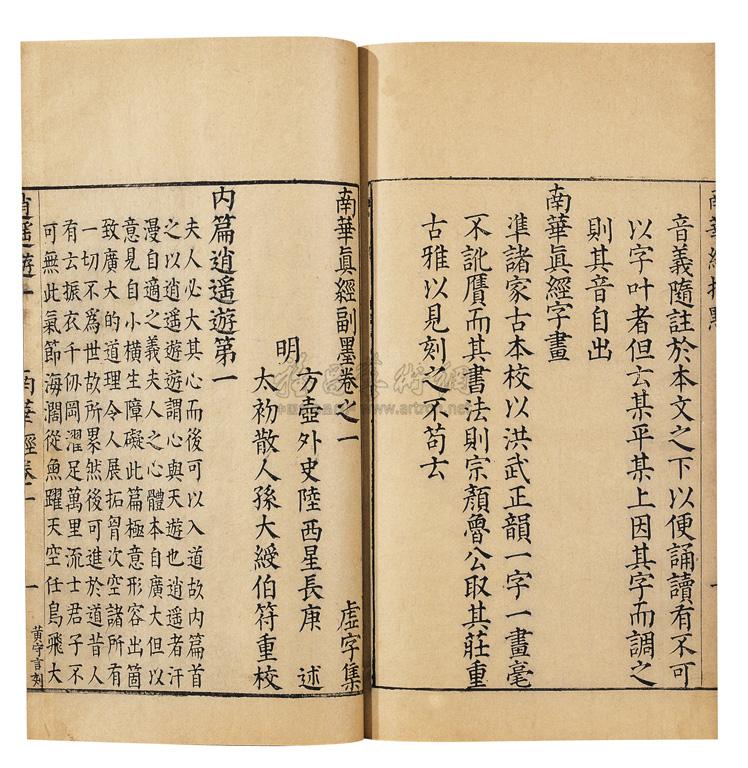 音義隨註於本文之下以便誦讀有不可
以字叶者但云某平某上因其字而調之
則其音自出
南華眞經字畫
準諸家古本校以洪武正韻一字一畫毫
不訛贋而其書法則宗顏魯公取其莊重
古雅以見刻之不苟云
南華眞經副墨卷之一 虛字集
明 方壺外史陸西星長庚 述
太初散人孫大綬伯符重校
内篇逍遥遊第一
夫人必大其心而後可以入道故内篇首
之以逍遥遊遊謂心與天遊也逍遥者汗
漫自適之義夫人之心體本自廣大但以
意見自小橫生障礙此篇極意形容出箇
致廣大的道理令人展拓胷次空諸所有
一切不爲世故所累然後可進於道昔人
有云振衣千仞岡濯足萬里流士君子不
可無此氣節海濶從魚躍天空任鳥飛大
逍遥遊一 南華經卷一 一 黄守言刻
www.artron.net